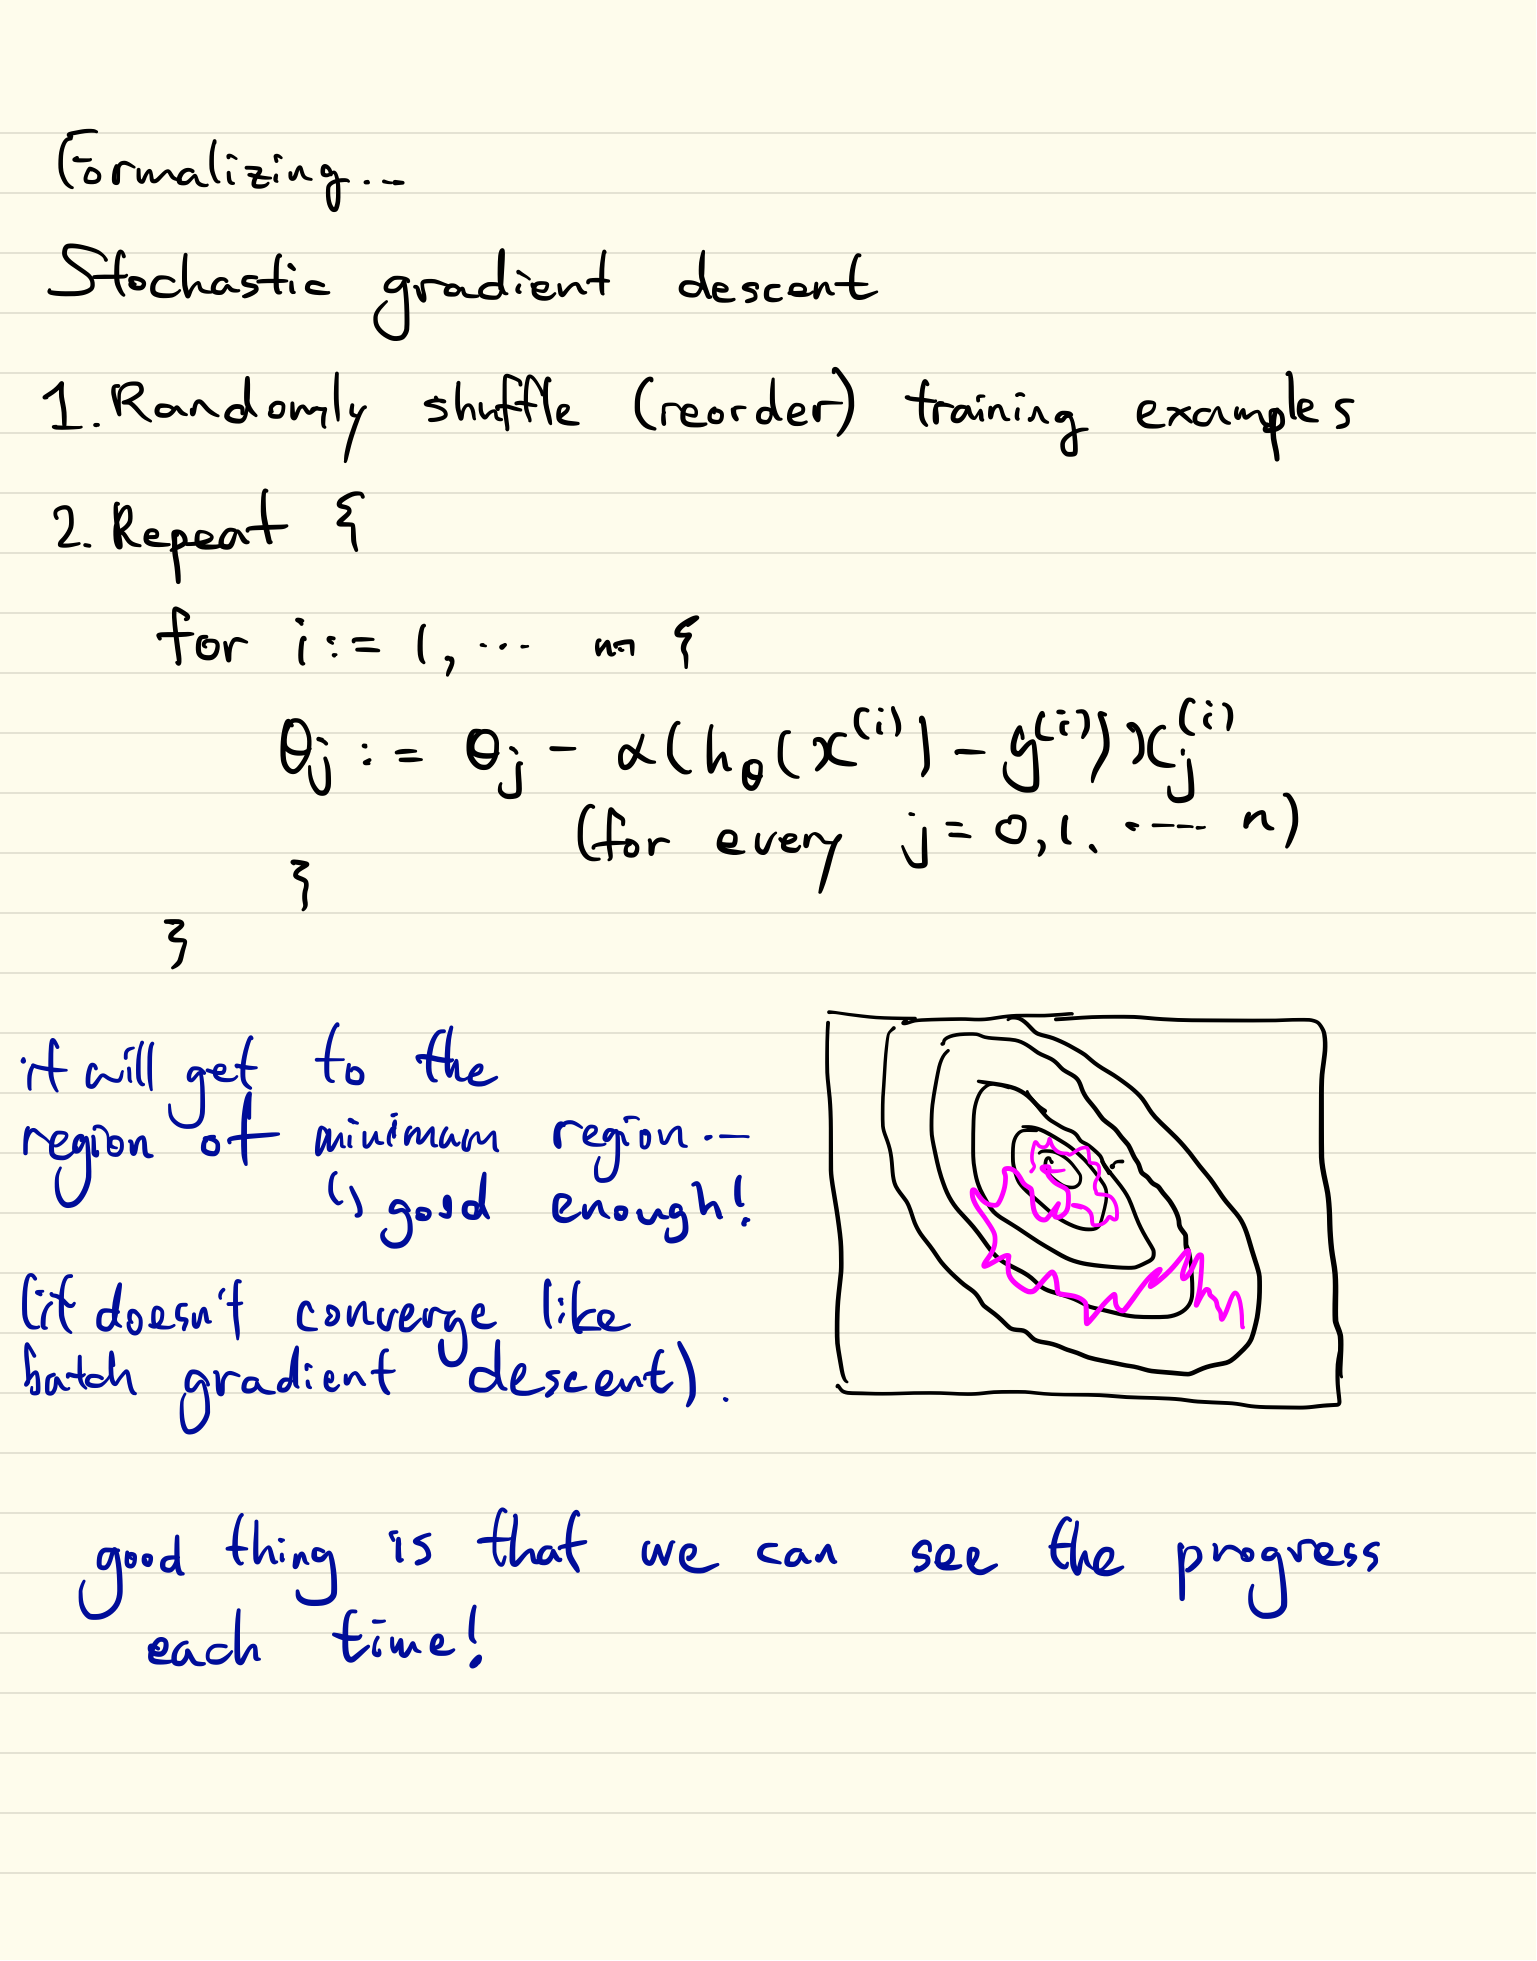 Formalizing...
Stochastic gradient descent
1. Randomly shuffle (reorder) training examples
2. Repeat {
for i := 1, ... m {
θj := θj - α(hθ(x^(i)) - y^(i)) xj^(i)
(for every j = 0, 1, .... n)
}
}
it will get to the
region of minimum region...
↳ good enough!
(it doesn't converge like
batch gradient descent).
good thing is that we can see the progress
each time!